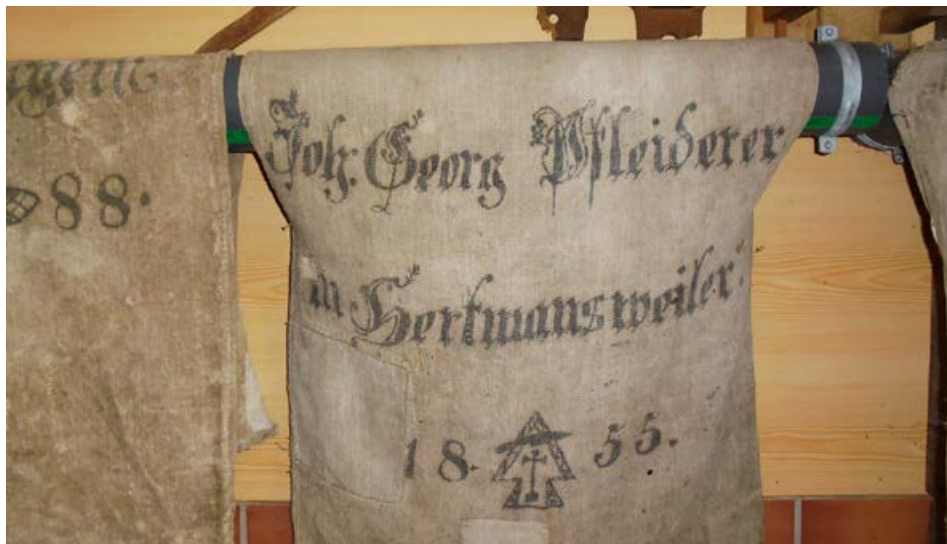 88.
Joh. Georg Pfleiderer
in Hertmansweiler.
18. 55.